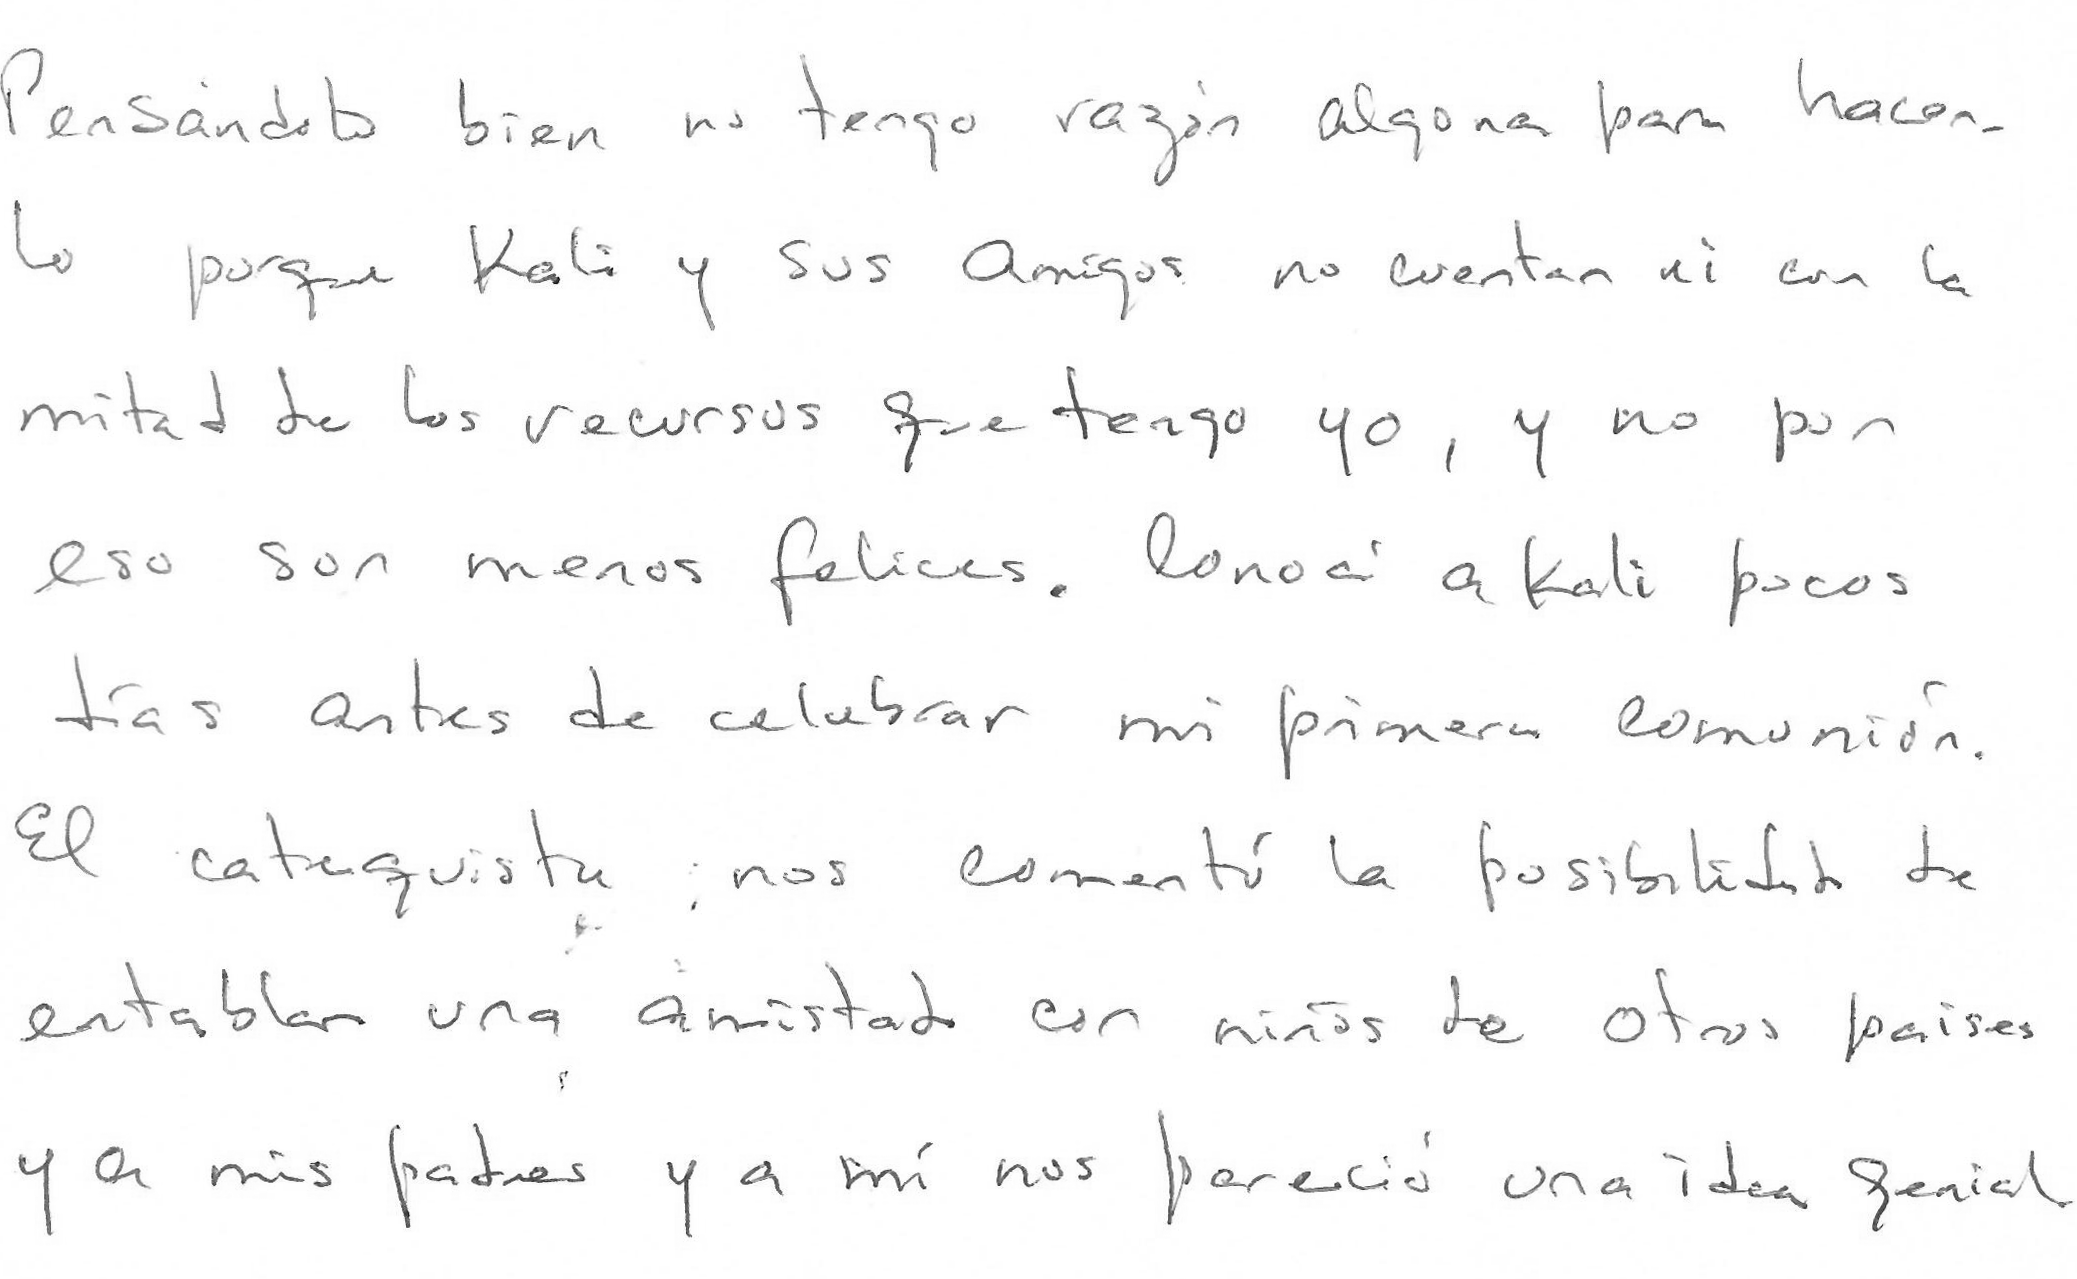 Pensándolo bien no tengo razón alguna para hacer-
lo porque Kali y sus amigos no cuentan ni con la
mitad de los recursos que tengo yo, y no por
eso son menos felices. Conocí a Kali pocos
días antes de celebrar mi primera comunión.
El catequista nos comentó la posibilidad de
entablar una amistad con niños de otros paises
y a mis padres y a mí nos pareció una idea genial